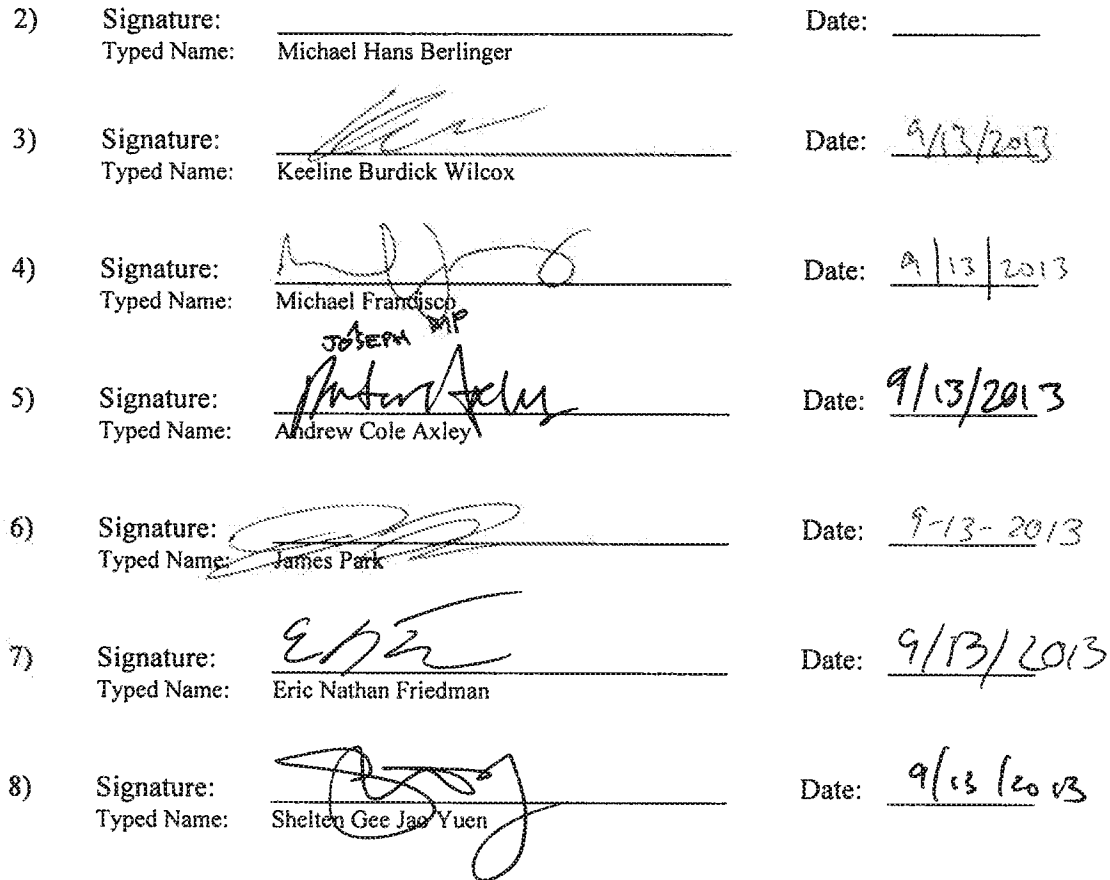 2) Signature: Date:
Typed Name: Michael Hans Berlinger
3) Signature: Date: 9/13/2013
Typed Name: Keeline Burdick Wilcox
4) Signature: Date: 9/13/2013
Typed Name: Michael Francisco
JOSEPH
5) Signature: Axley Date: 9/13/2013
Typed Name: Andrew Cole Axley
6) Signature: Date: 9-13-2013
Typed Name: James Park
7) Signature: Date: 9/13/2013
Typed Name: Eric Nathan Friedman
8) Signature: Date: 9/13/2013
Typed Name: Shelten Gee Jao Yuen